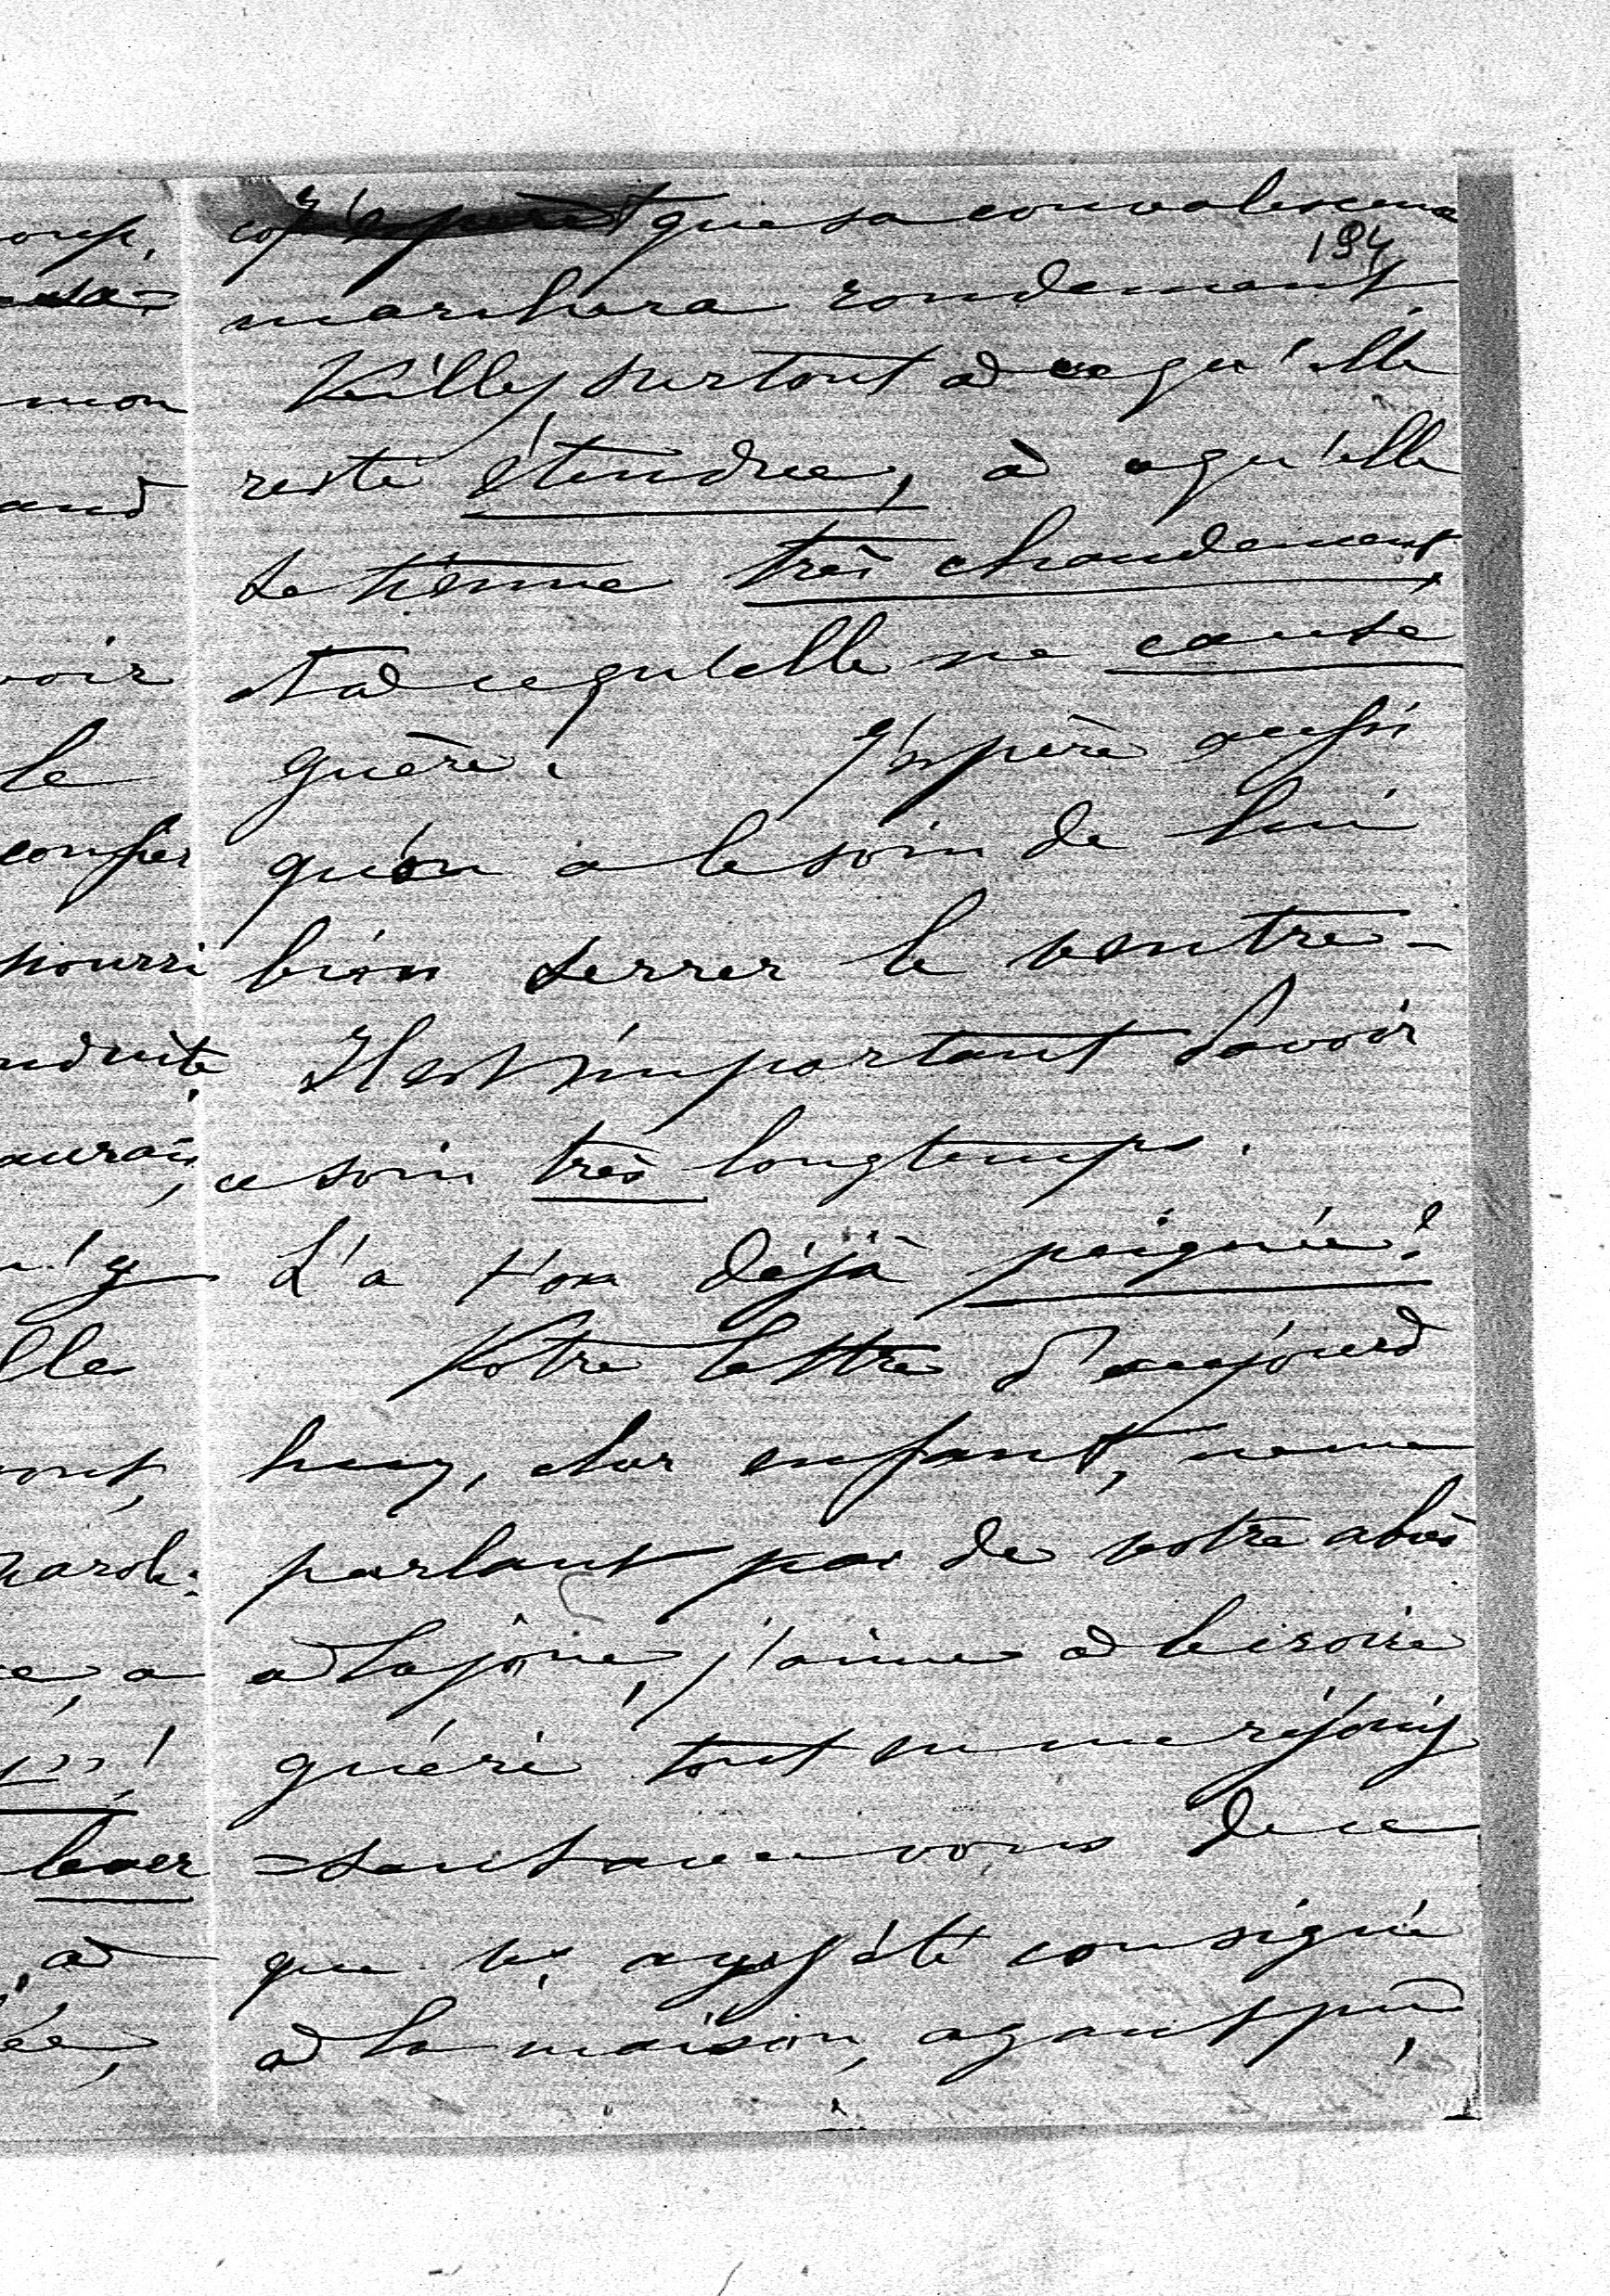 j'espère que sa convalescence
194
marchera rondement.
Veillez surtout à ce qu'elle
reste étendue, à ce qu'elle
se tienne très chaudement,
et à ce qu'elle ne cause
guère. J'espère aussi
qu'on a le soin de lui
bien serrer le ventre –
Il est important d'avoir
ce soin très longtemps.
L'a t'on déjà peignée?
Votre lettre d'aujourd
huy, cher enfant, ne me
parlant pas de votre abcès
à la joue, j'aime à le croire
guéri tout en me réjouis
=sant avec vous de ce
que vs ayez été consigné
à la maison, ayant pu,
mon
and
voir
le
confier
pourri
nduite.
aurais,
n'y
lles
ont,
parole.
e, a
!
lever
, à
ée,